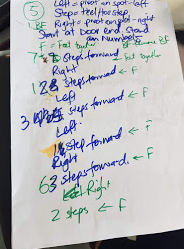 5 Left = pivot on spot - left
Step = heel toe step
Right = pivot on spot - right
Start at Door end. Stand
F = feet together
7 Steps forward
Right
12 Steps forward ← F
Left
3 steps forward ← F
Left
steps forward ← F
Right
3 steps forward ← F
63 Right
2 steps ← F